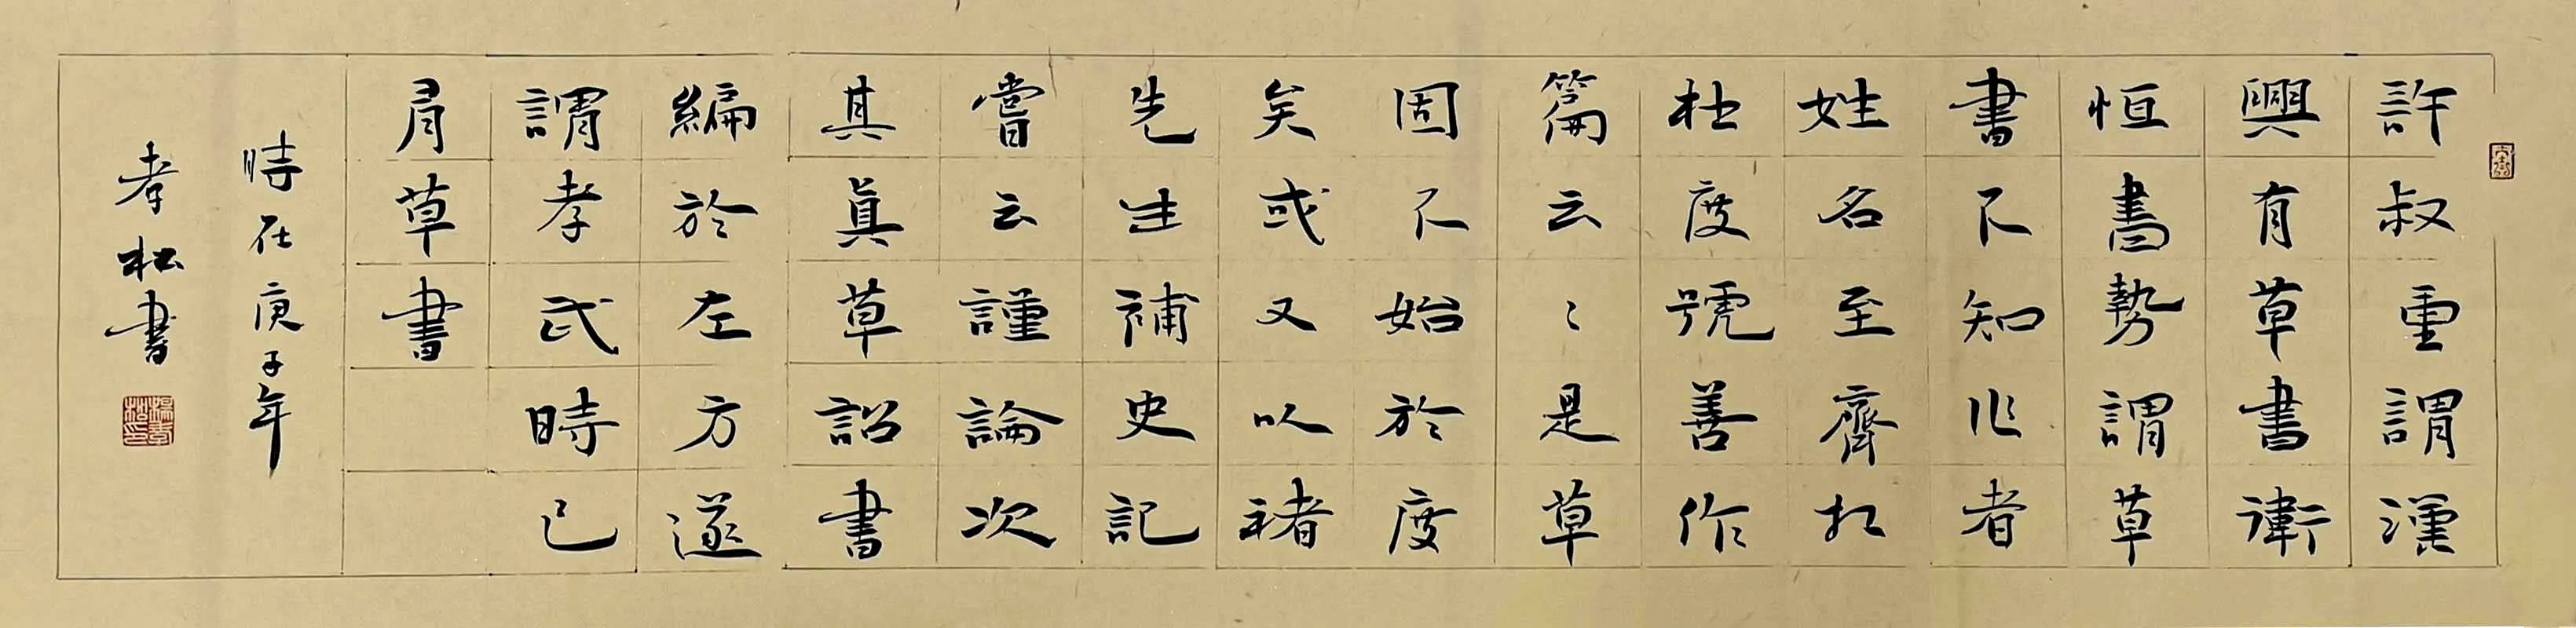 許叔重謂漢
興有草書衛
恒書勢謂草
書不知作者
姓名至齊相
杜度號善作
篇云〻是草
固不始於度
矣或又以褚
先生補史記
嘗云謹論次
其真草詔書
編於左方遂
謂孝武時已
有草書
時在庚子年
孝松書